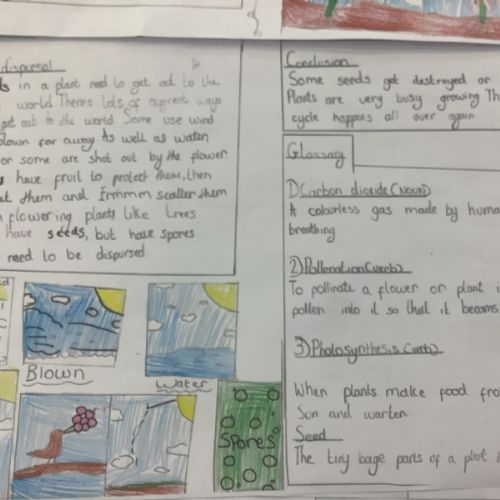 dispersal
in a plant need to get out to the
world Theres lots of
get out to the world Some use wind
blown far away As well as water
or some are shot out by the flower
have fruit to protect them, then
them and scatter them
flowering plants like trees
have seeds, but have spores
need to be dispursed
Blown
Water
Spores
Conclusion
Some seeds get destroyed or
Plants are very busy growing Th
cycle happens all over again
Glossary
1) Carbon dioxide (Noun)
A colourless gas made by human
breathing
2) (verb)
To pollinate a flower or plant i
pollen into it so that it
3) Photosynthesis (verb)
When plants make food fro
Sun and
Seed
The tiny parts of a plant